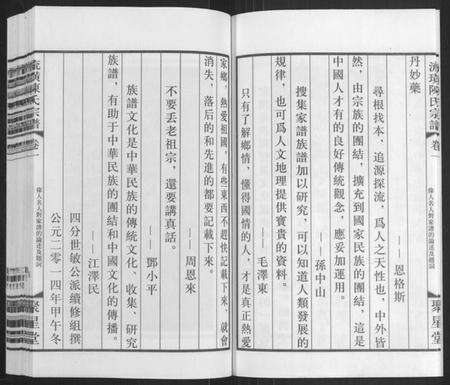 海璜陳氏宗譜
卷一
偉人名人對家譜的論述及題詞
聚星堂
丹妙藥
——恩格斯
尋根找本，追源探流，爲人之天性也，中外皆
然，由宗族的團結，擴充到國家民族的團結，這是
中國人才有的良好傳統觀念，應妥加運用。
——孫中山
搜集家譜族譜加以研究，可以知道人類發展的
規律，也可爲人文地理提供寶貴的資料。
——毛澤東
只有了解鄉情，懂得國情的人，才是真正熱愛
家鄉，熱愛祖國，有些東西不趕快記載下來，就會
消失，落后的和先進的都要記載下來。
——周恩來
不要丟老祖宗，還要講真話。
——鄧小平
族譜文化是中華民族的傳統文化，收集、研究
族譜，有助于中華民族的團結和中國文化的傳播。
——江澤民
四分世敏公派續修組撰
公元二零一四年甲午冬
陳氏宗譜
卷一
偉人名人對家譜的論述及題詞
聚星堂